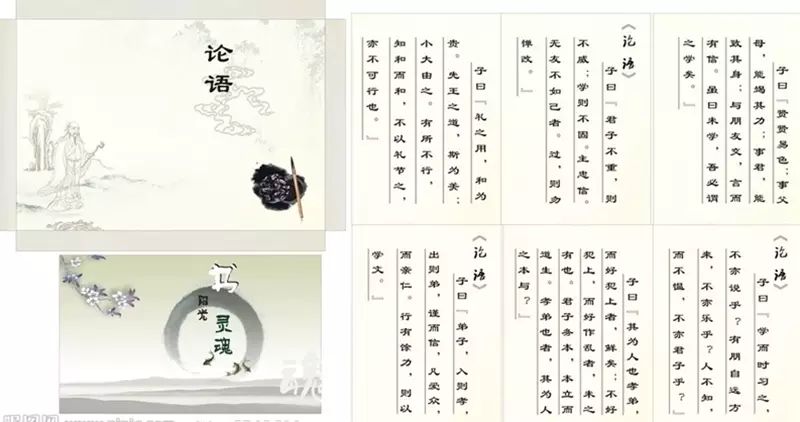 论语
阳光
灵魂
魂
子曰『礼之用，和为
贵。先王之道，斯为美；
小大由之。有所不行，
知和而和，不以礼节之，
亦不可行也。』
《论语》
子曰『君子不重，则
不威；学则不固。主忠信。
无友不如己者。过，则勿
惮改。』
子曰『贤贤易色；事父
母，能竭其力；事君，能
致其身；与朋友交，言而
有信。虽曰未学，吾必谓
之学矣。』
《论语》
子曰『弟子，入则孝，
出则弟，谨而信，凡爱众，
而亲仁。行有馀力，则以
学文。』
子曰『其为人也孝弟，
而好犯上者，鲜矣；不好
犯上，而好作乱者，未之
有也。君子务本，本立而
道生。孝弟也者，其为人
之本与？』
《论语》
子曰『学而时习之，
不亦说乎？有朋自远方
来，不亦乐乎？人不知，
而不愠，不亦君子乎？』